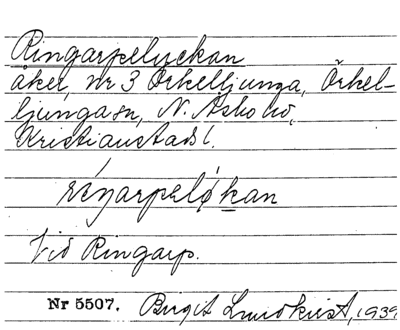 Ringarpelyckan
åker, nr 3 Örkelljunga, Örkel-
ljunga sn, N. Åsbo hd,
Kristianstads l.
rıŋarpeløkan
Vid Ringarp.
Nr 5507. Birgit Lundkvist, 1939